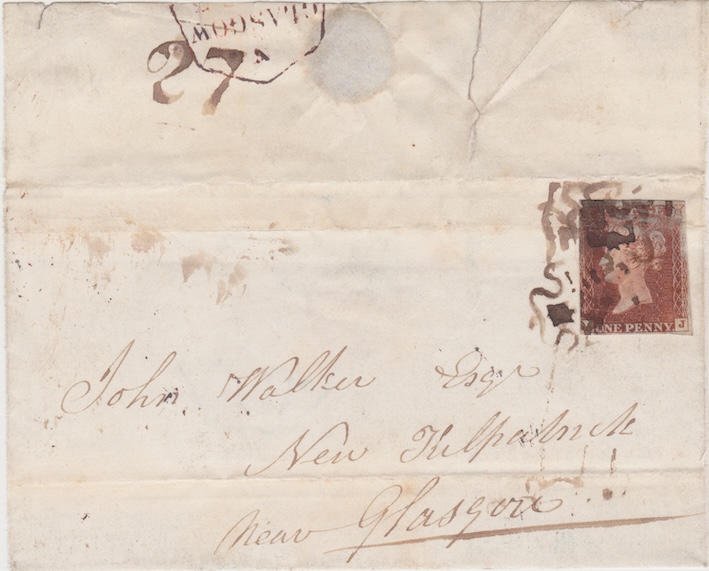 GLASGOW
A
27
ONE PENNY
J
John Walker Esqr
New Kilpatrick
near Glasgow